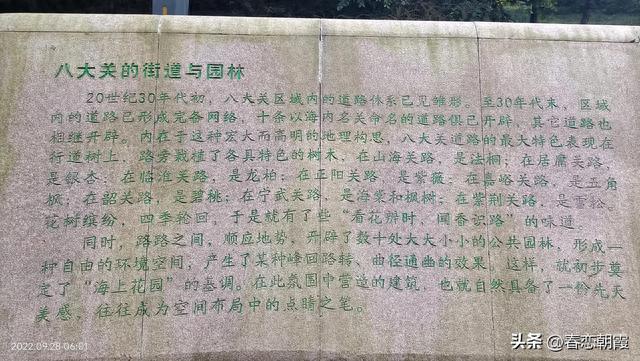 八大关的街道与园林
20世纪30年代初，八大关区域内的道路体系已见雏形。至30年代末，区域
内的道路已形成完备网络，十条以海内名关命名的道路俱已开辟，其它道路也
相继开辟。内在于这种宏大而高明的地理构思，八大关道路的最大特色表现在
行道树上，路旁栽植了各具特色的树木，在山海关路，是法桐；在居庸关路，
是银杏；在临淮关路，是龙柏；在正阳关路，是紫薇；在嘉峪关路，是五角
枫；在韶关路，是碧桃；在宁武关路，是海棠和枫树；在紫荆关路，是雪松。
花树缤纷，四季轮回，于是就有了些“看花辨时，闻香识路”的味道。
同时，路路之间，顺应地势，开辟了数十处大大小小的公共园林，形成一
种自由的环境空间，产生了某种峰回路转、曲径通幽的效果。这样，就初步奠
定了“海上花园”的基调。在此氛围中营造的建筑，也就自然具备了一份先天
美感，往往成为空间布局中的点睛之笔。
2022.09.28 06:01
头条 @春恋朝霞